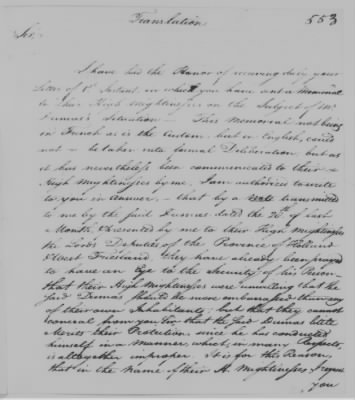 Translation
553
Sir,
I have had the Honor of receiving duly your
Letter of 1st Instant in which you have sent a Memorial
to their High Mightinesses on the Subject of Mr.
Dumas's Situation — This Memorial not being
in French as is the Custom, but in English, could
not be taken into formal Deliberation, but as
it has nevertheless been communicated to their
High Mightinesses by me, I am authorized to write
to you in Answer, — that by a Note transmitted
to me by the said Dumas dated the 26th of last
Month & presented by me to their High Mightinesses
the Lords Deputies of the Province of Holland
& West Friesland, they have already been prayed
to have an Eye to the Security of his Person —
that their High Mightinesses were unwilling that the
said Dumas should be more embarassed than any
of their own Inhabitants, but that they cannot
conceal from you Sir that the said Dumas little
Merits their Protection, since he has conducted
himself in a manner, which, in many Respects,
is altogether improper. It is for this Reason,
that in the Name of their H. Mightinesses I request
you